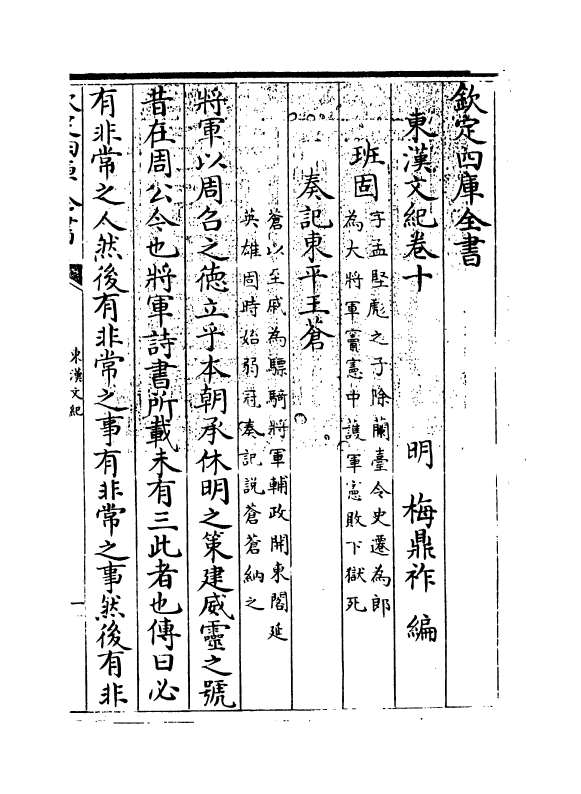 欽定四庫全書
東漢文紀卷十
明 梅鼎祚 編
班固
字孟堅彪之子除蘭臺令史遷為郎
為大將軍竇憲中護軍憲敗下獄死
奏記東平王蒼
蒼以至戚為驃騎將軍輔政開東閤延
英雄固時始弱冠奏記說蒼蒼納之
將軍以周召之徳立乎本朝承休明之策建威靈之號
昔在周公今也將軍詩書所載未有三此者也傳曰必
有非常之人然後有非常之事有非常之事然後有非
東漢文紀
一